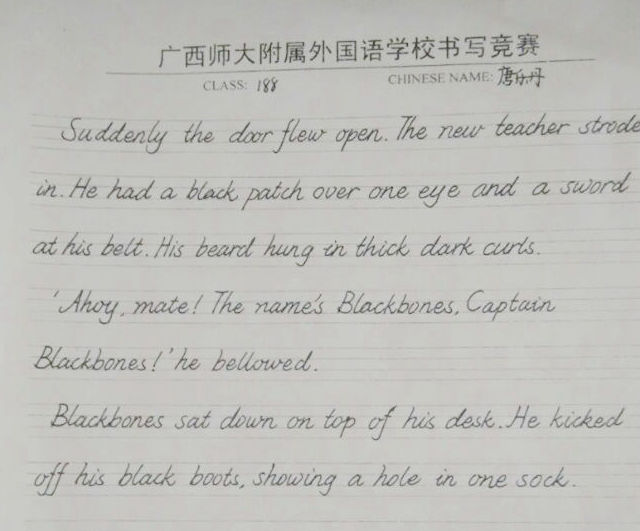 广西师大附属外国语学校书写竞赛
CLASS: 188 CHINESE NAME: 唐乐丹
Suddenly the door flew open. The new teacher strode
in. He had a black patch over one eye and a sword
at his belt. His beard hung in thick dark curls.
'Ahoy, mate! The name's Blackbones, Captain
Blackbones!' he bellowed.
Blackbones sat down on top of his desk. He kicked
off his black boots, showing a hole in one sock.